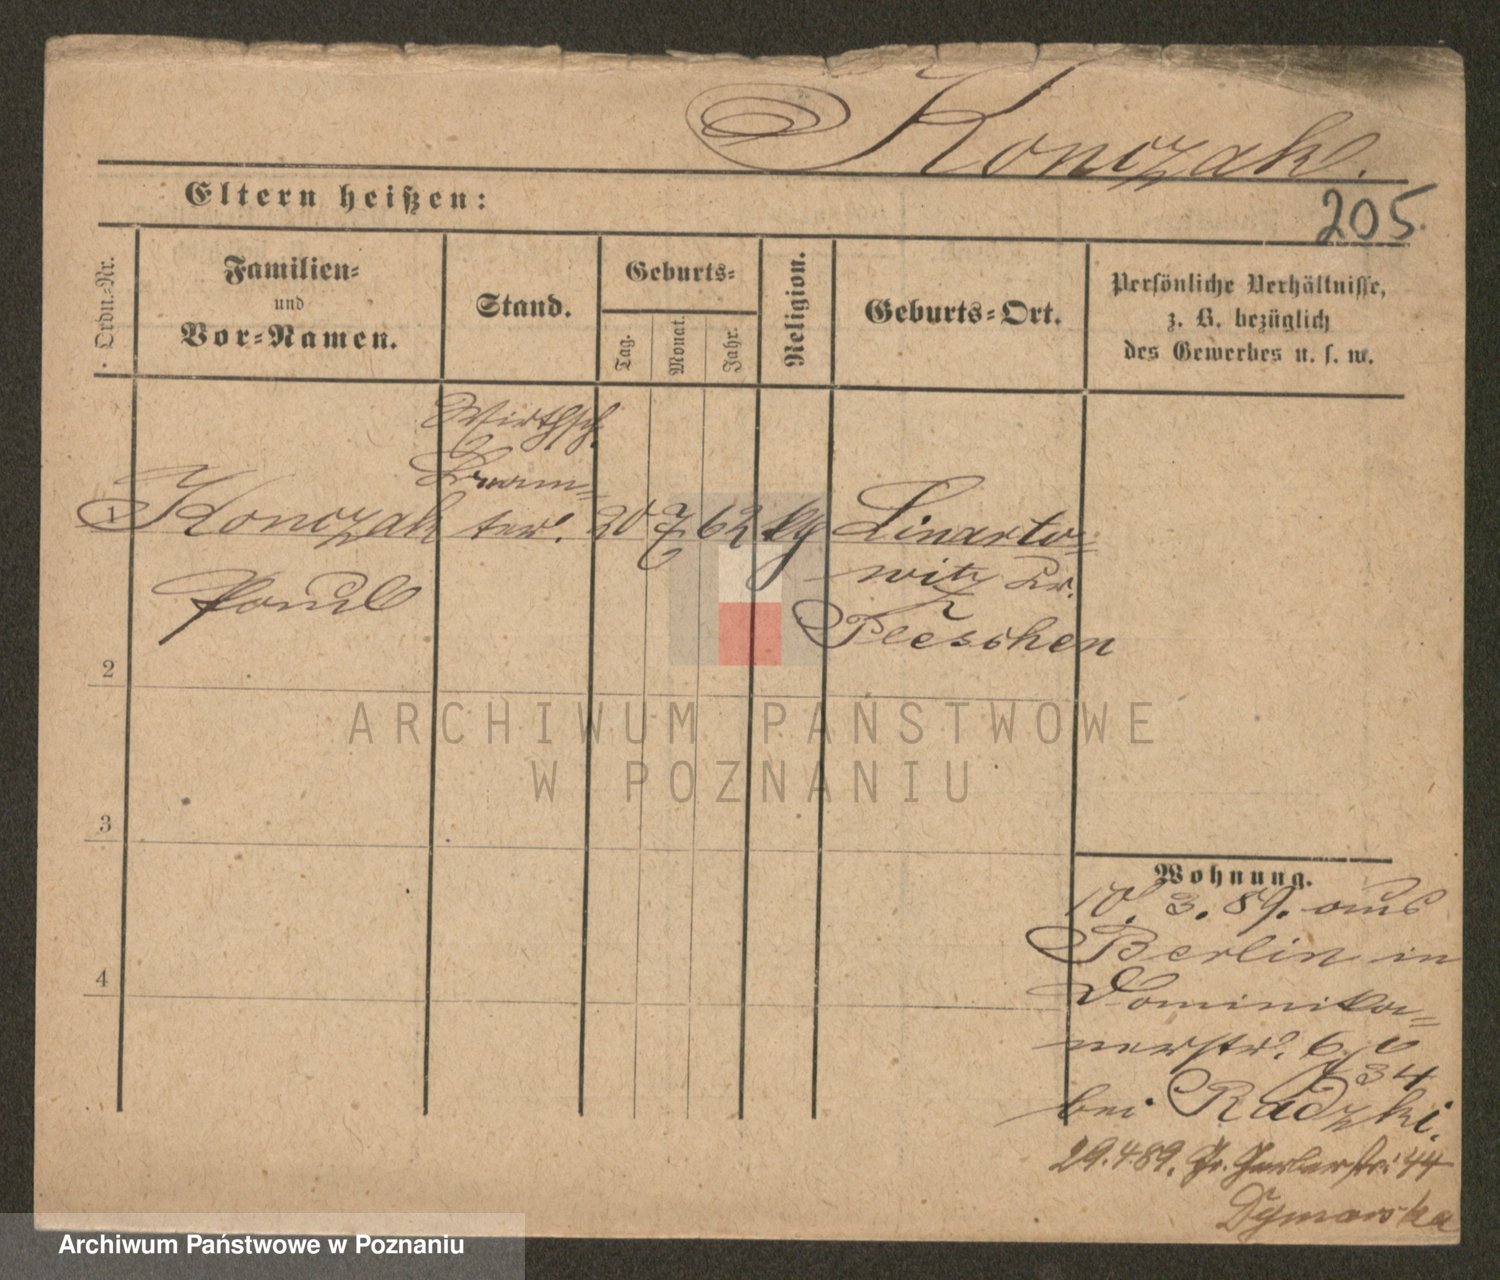 Konczak.
Eltern heißen:
205.
Ordn.-Nr.
Familien-
und
Vor-Namen.
Stand.
Geburts-
Tag.
Monat.
Jahr.
Religion.
Geburts-Ort.
Persönliche Verhältnisse,
z. B. bezüglich
des Gewerbes u. s. w.
Wirthsch.
Beam-
1 Konczak ter. 20 7 62 kg Linarto-
witz Kr.
Paul
Pleschen
2
3
4
Wohnung.
10. 3. 89. aus
Berlin in
Dominika-
nerstr.
34
bei Radzki.
29.4.89. Gr. Gerberstr. 44
Dymarska
ARCHIWUM PAŃSTWOWE
W POZNANIU
Archiwum Państwowe w Poznaniu